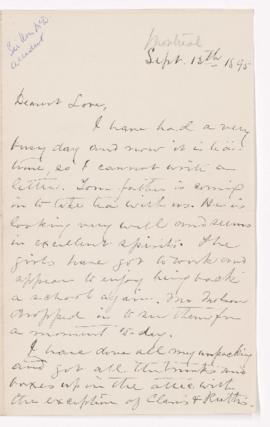 Montreal
Sept. 18th 1895
Dearest Love,
I have had a very
busy day and now it is tea-
time, so I cannot write a
letter. Your father is coming
in to take tea with us. He is
looking very well and seems
in excellent spirits. The
girls have got to work and
appear to enjoy being back
a school again. Mrs
dropped in to see them for
a moment to-day.
I have done all my unpacking
and got all the trunks and
boxes up in the attic with
the exception of Clara's & Ruth's.